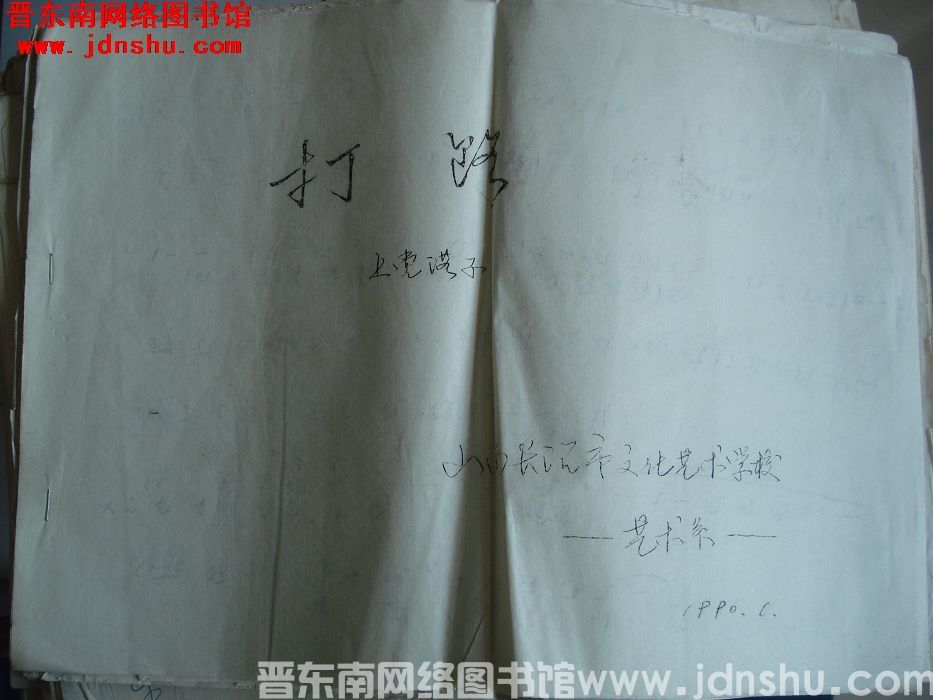 晋东南网络图书馆
www.jdnshu.com
打 路
上党落子
山西长治市文化艺术学校
——艺术系——
1990.1.
晋东南网络图书馆www.jdnshu.com